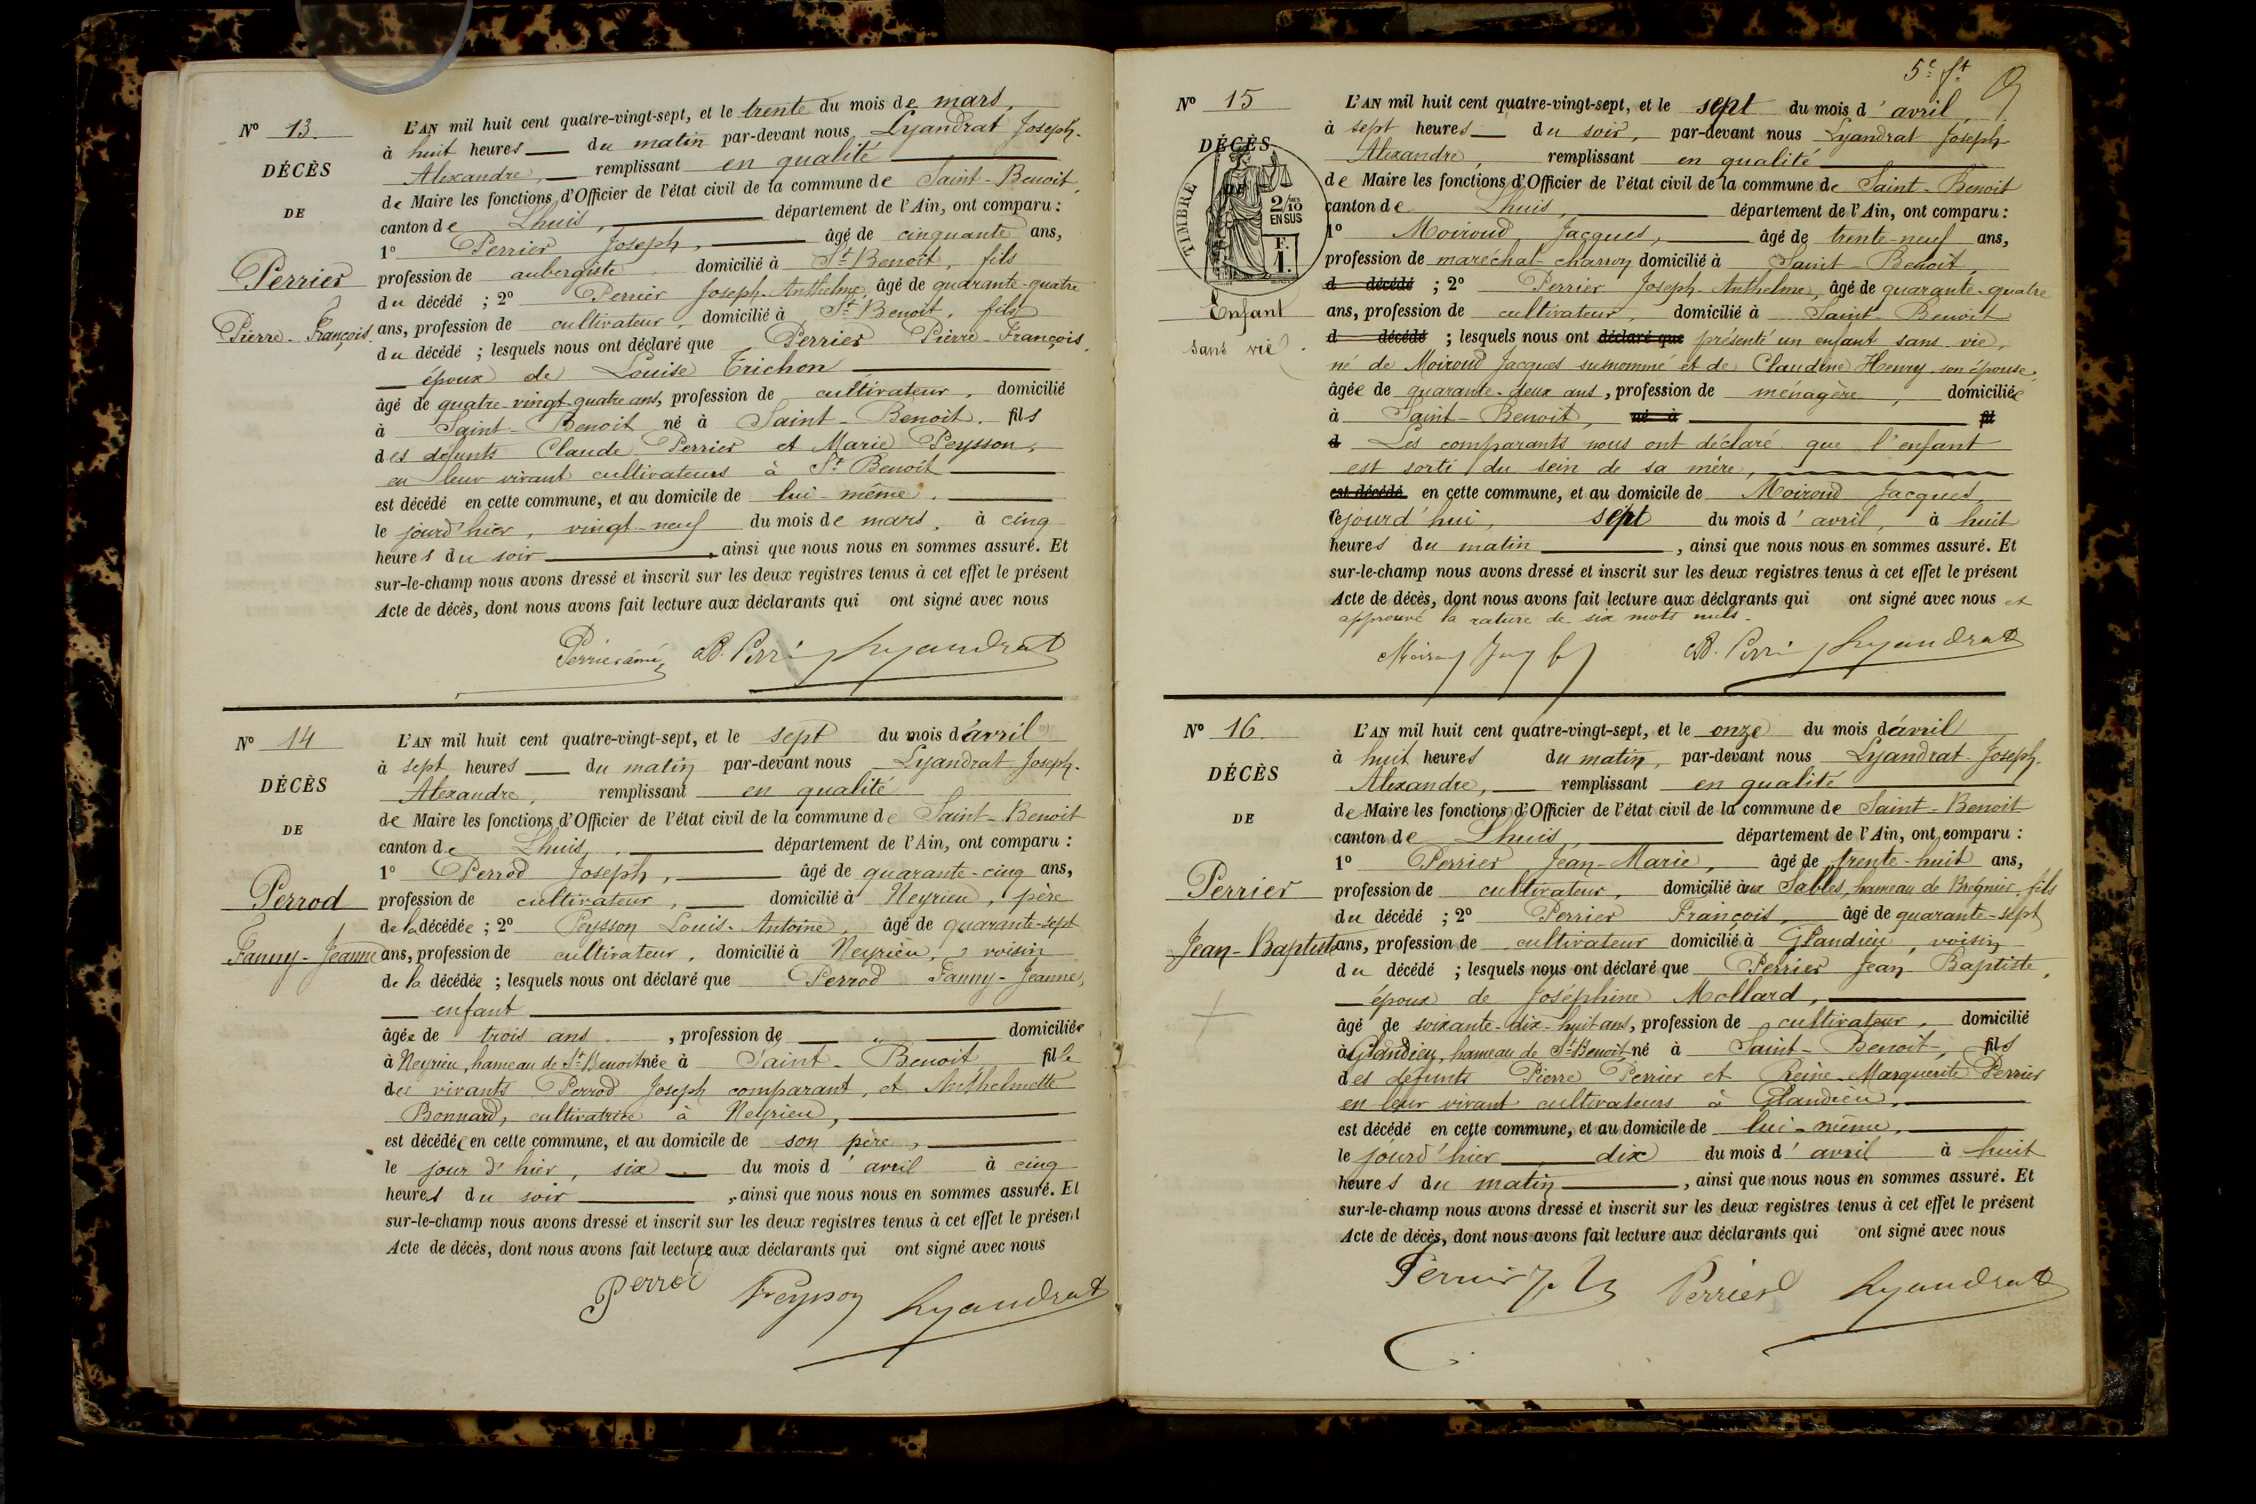 N° 13.
DÉCÈS
DE
Perrier
Pierre-François.
L'AN mil huit cent quatre-vingt-sept, et le trente du mois de mars,
à huit heures du matin par-devant nous Lyandrat Joseph-
Alexandre, remplissant en qualité
de Maire les fonctions d'Officier de l'état civil de la commune de Saint-Benoit,
canton de Lhuis, département de l'Ain, ont comparu :
1° Perrier Joseph, âgé de cinquante ans,
profession de aubergiste domicilié à St Benoit, fils
du décédé ; 2° Perrier Joseph-Anthelme, âgé de quarante-quatre
ans, profession de cultivateur, domicilié à St Benoit, fils
du décédé ; lesquels nous ont déclaré que Perrier Pierre-François,
époux de Louise Trichon
âgé de quatre-vingt-quatre ans, profession de cultivateur, domicilié
à Saint-Benoit né à Saint-Benoit, fils
des défunts Claude Perrier et Marie Peysson,
en leur vivant cultivateurs à St Benoit
est décédé en cette commune, et au domicile de lui-même.
le jourd'hier, vingt-neuf du mois de mars, à cinq
heures du soir, ainsi que nous nous en sommes assuré. Et
sur-le-champ nous avons dressé et inscrit sur les deux registres tenus à cet effet le présent
Acte de décès, dont nous avons fait lecture aux déclarants qui ont signé avec nous
Perrier aîné Perri Lyandrat
N° 14
DÉCÈS
DE
Perrod
Fanny-Jeanne
L'AN mil huit cent quatre-vingt-sept, et le sept du mois d'avril
à sept heures du matin par-devant nous Lyandrat Joseph-
Alexandre, remplissant en qualité
de Maire les fonctions d'Officier de l'état civil de la commune de Saint-Benoit
canton de Lhuis, département de l'Ain, ont comparu :
1° Perrod Joseph, âgé de quarante-cinq ans,
profession de cultivateur, domicilié à Neyrieu, père
de la décédée ; 2° Peysson Louis-Antoine, âgé de quarante-sept
ans, profession de cultivateur, domicilié à Neyrieu, voisin
de la décédée ; lesquels nous ont déclaré que Perrod Fanny-Jeanne,
enfant
âgée de trois ans, profession de " domiciliée
à Neyrieu, hameau de St Benoit née à Saint-Benoit, fille
des vivants Perrod Joseph comparant, et Anthelmette
Bonnard, cultivatrice à Neyrieu,
est décédée en cette commune, et au domicile de son père,
le jour d'hier, six du mois d'avril à cinq
heures du soir, ainsi que nous nous en sommes assuré. Et
sur-le-champ nous avons dressé et inscrit sur les deux registres tenus à cet effet le présent
Acte de décès, dont nous avons fait lecture aux déclarants qui ont signé avec nous
Perrod Peysson Lyandrat
5e ft
N° 15
DÉCÈS
DE
TIMBRE
2/10
EN SUS
F.
1.
Enfant
sans vie.
L'AN mil huit cent quatre-vingt-sept, et le sept du mois d'avril,
à sept heures du soir, par-devant nous Lyandrat Joseph
Alexandre, remplissant en qualité
de Maire les fonctions d'Officier de l'état civil de la commune de Saint-Benoit
canton de Lhuis, département de l'Ain, ont comparu :
1° Moiroud Jacques, âgé de trente-neuf ans,
profession de maréchal-charron domicilié à Saint-Benoit,
d décédé ; 2° Perrier Joseph-Anthelme, âgé de quarante-quatre
ans, profession de cultivateur, domicilié à Saint-Benoit
d décédé ; lesquels nous ont déclaré que présenté un enfant sans vie,
né de Moiroud Jacques susnommé et de Claudine Henry son épouse,
âgée de quarante-deux ans, profession de ménagère, domiciliée
à Saint-Benoit, né à fil
d Les comparants nous ont déclaré que l'enfant
est sorti du sein de sa mère,
est décédé en cette commune, et au domicile de Moiroud Jacques,
cejourd'hui, sept du mois d'avril, à huit
heures du matin, ainsi que nous nous en sommes assuré. Et
sur-le-champ nous avons dressé et inscrit sur les deux registres tenus à cet effet le présent
Acte de décès, dont nous avons fait lecture aux déclarants qui ont signé avec nous et
approuvé la rature de six mots nuls.
Perri Lyandrat
N° 16.
DÉCÈS
DE
Perrier
Jean-Baptiste
L'AN mil huit cent quatre-vingt-sept, et le onze du mois d'avril
à huit heures du matin, par-devant nous Lyandrat Joseph-
Alexandre, remplissant en qualité
de Maire les fonctions d'Officier de l'état civil de la commune de Saint-Benoit
canton de Lhuis, département de l'Ain, ont comparu :
1° Perrier Jean-Marie, âgé de trente-huit ans,
profession de cultivateur, domicilié aux Sables, hameau de Brégnier, fils
du décédé ; 2° Perrier François, âgé de quarante-sept
ans, profession de cultivateur domicilié à Glandieu, voisin
du décédé ; lesquels nous ont déclaré que Perrier Jean Baptiste,
époux de Joséphine Mollard,
âgé de soixante-dix-huit ans, profession de cultivateur, domicilié
à Glandieu, hameau de St Benoit, né à Saint-Benoit, fils
des défunts Pierre Perrier et Reine-Marguerite Perrier
en leur vivant cultivateurs à Glandieu,
est décédé en cette commune, et au domicile de lui-même,
le jourd'hier dix du mois d'avril à huit
heures du matin, ainsi que nous nous en sommes assuré. Et
sur-le-champ nous avons dressé et inscrit sur les deux registres tenus à cet effet le présent
Acte de décès, dont nous avons fait lecture aux déclarants qui ont signé avec nous
Perrier Lyandrat